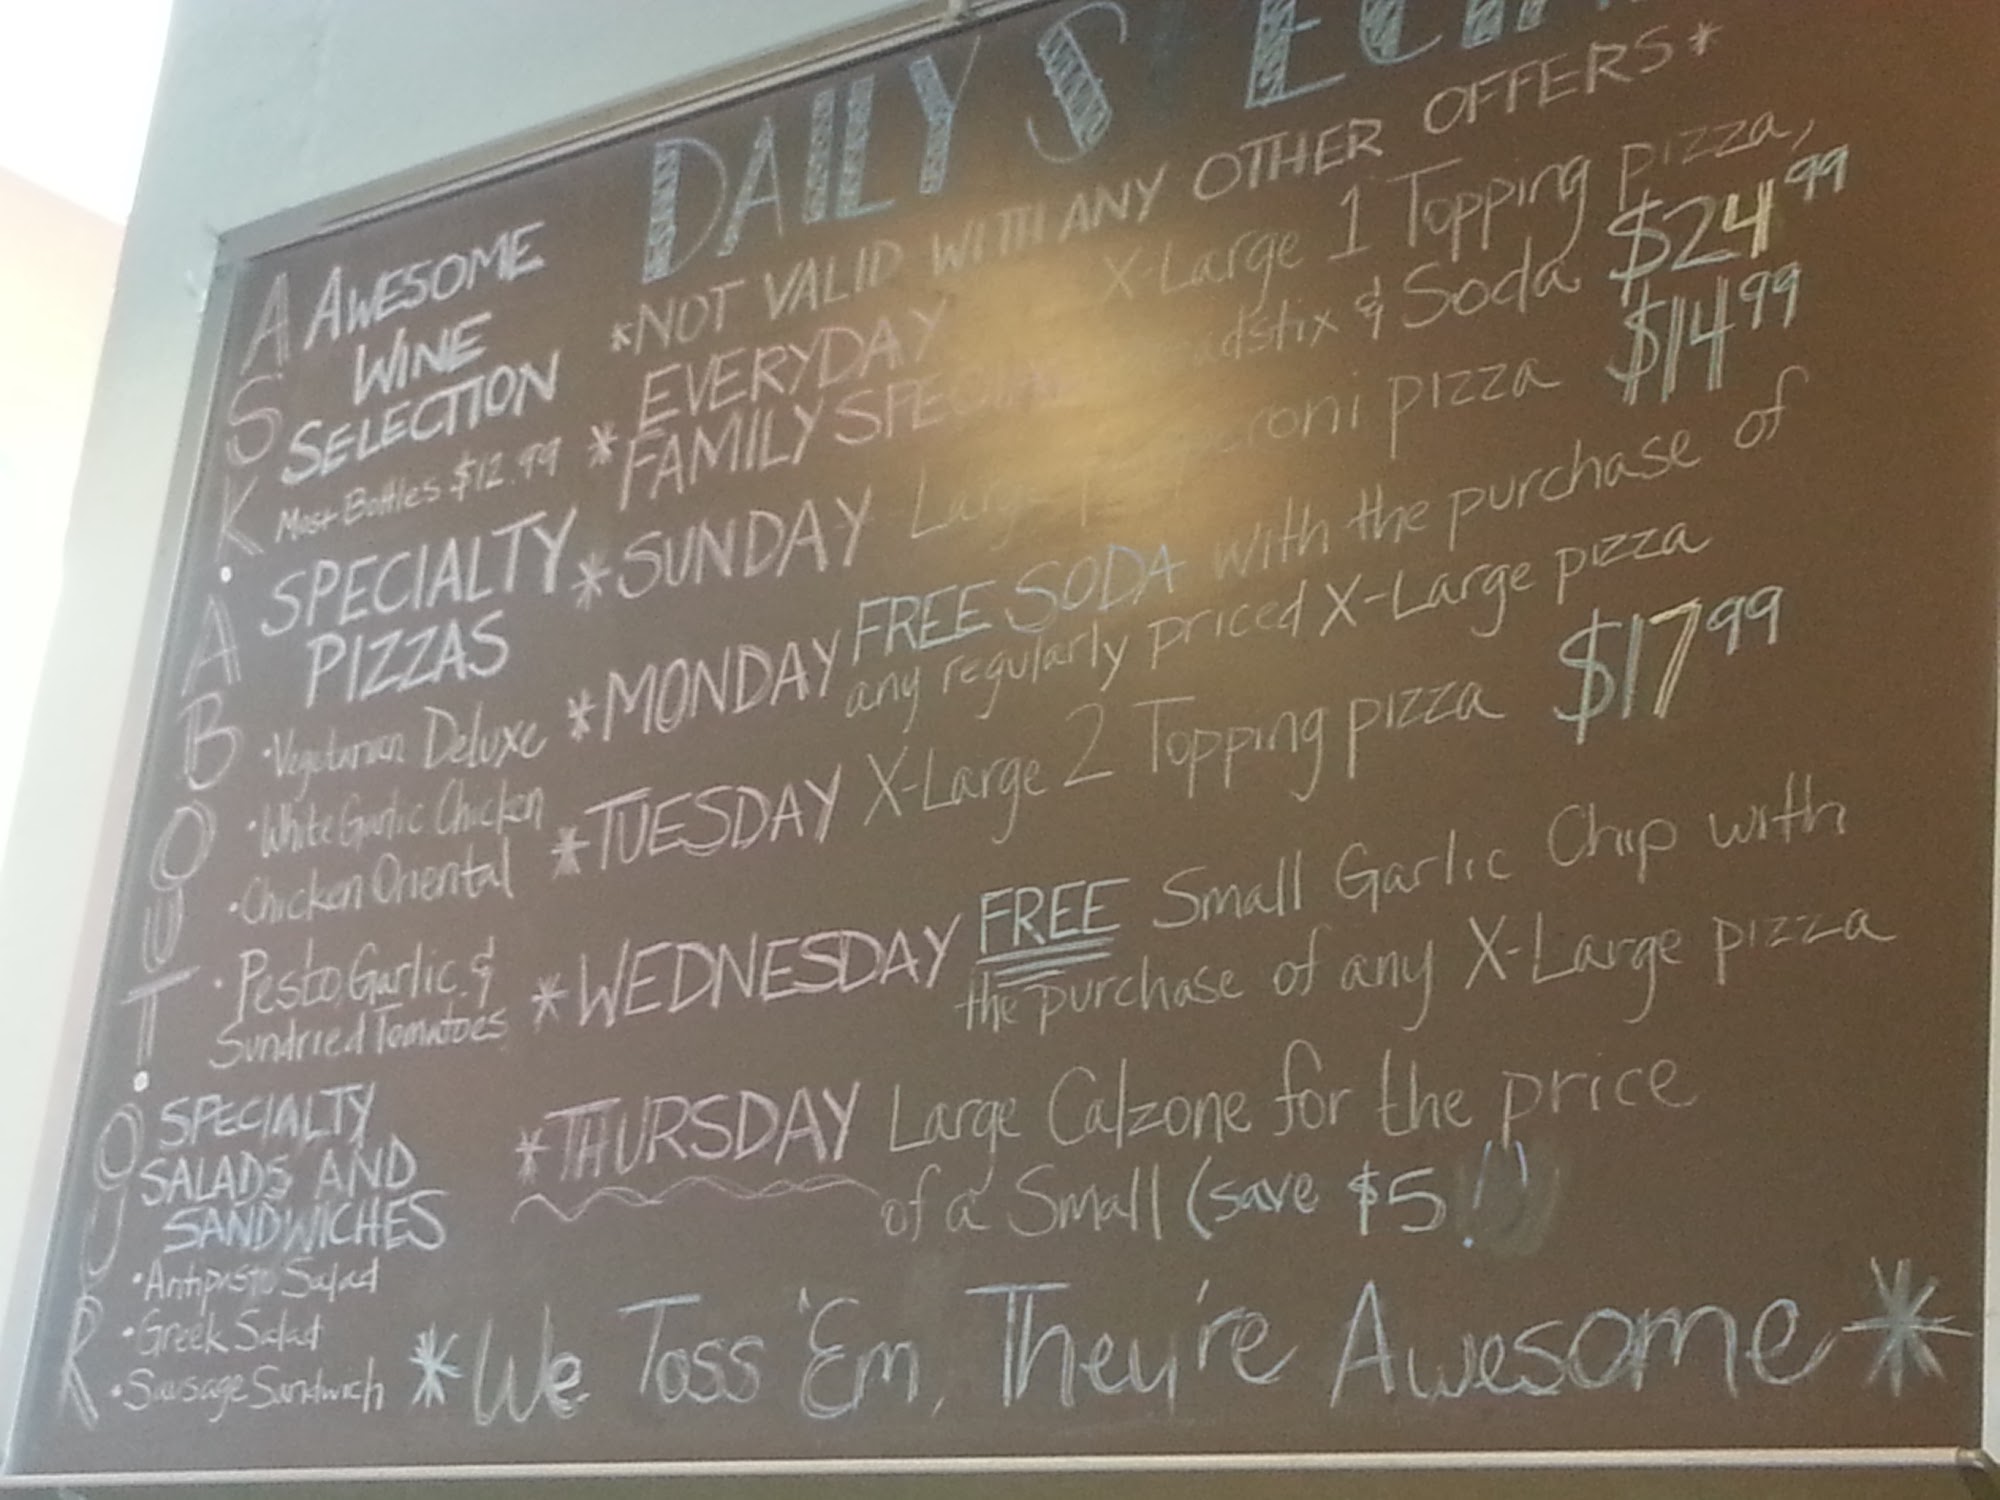 DAILY
*NOT VALID WITH ANY OTHER OFFERS*
* EVERYDAY FAMILY SPECIAL X-Large 1 Topping pizza,
& Soda $24 99
*SUNDAY Large pizza $14 99
*MONDAY FREE SODA with the purchase of
any regularly priced X-Large pizza
*TUESDAY X-Large 2 Topping pizza $17 99
*WEDNESDAY FREE Small Garlic Chip with
the purchase of any X-Large pizza
*THURSDAY Large Calzone for the price
of a Small (save $5!
*We Toss 'Em, They're Awesome*
ASK • ABOUT • OUR
AWESOME
WINE
SELECTION
Most Bottles $12.99
SPECIALTY
PIZZAS
• Vegetarian Deluxe
• White Garlic Chicken
• Chicken Oriental
• Pesto, Garlic &
Sundried Tomatoes
SPECIALTY
SALADS AND
SANDWICHES
• Antipasto Salad
• Greek Salad
• Sausage Sandwich